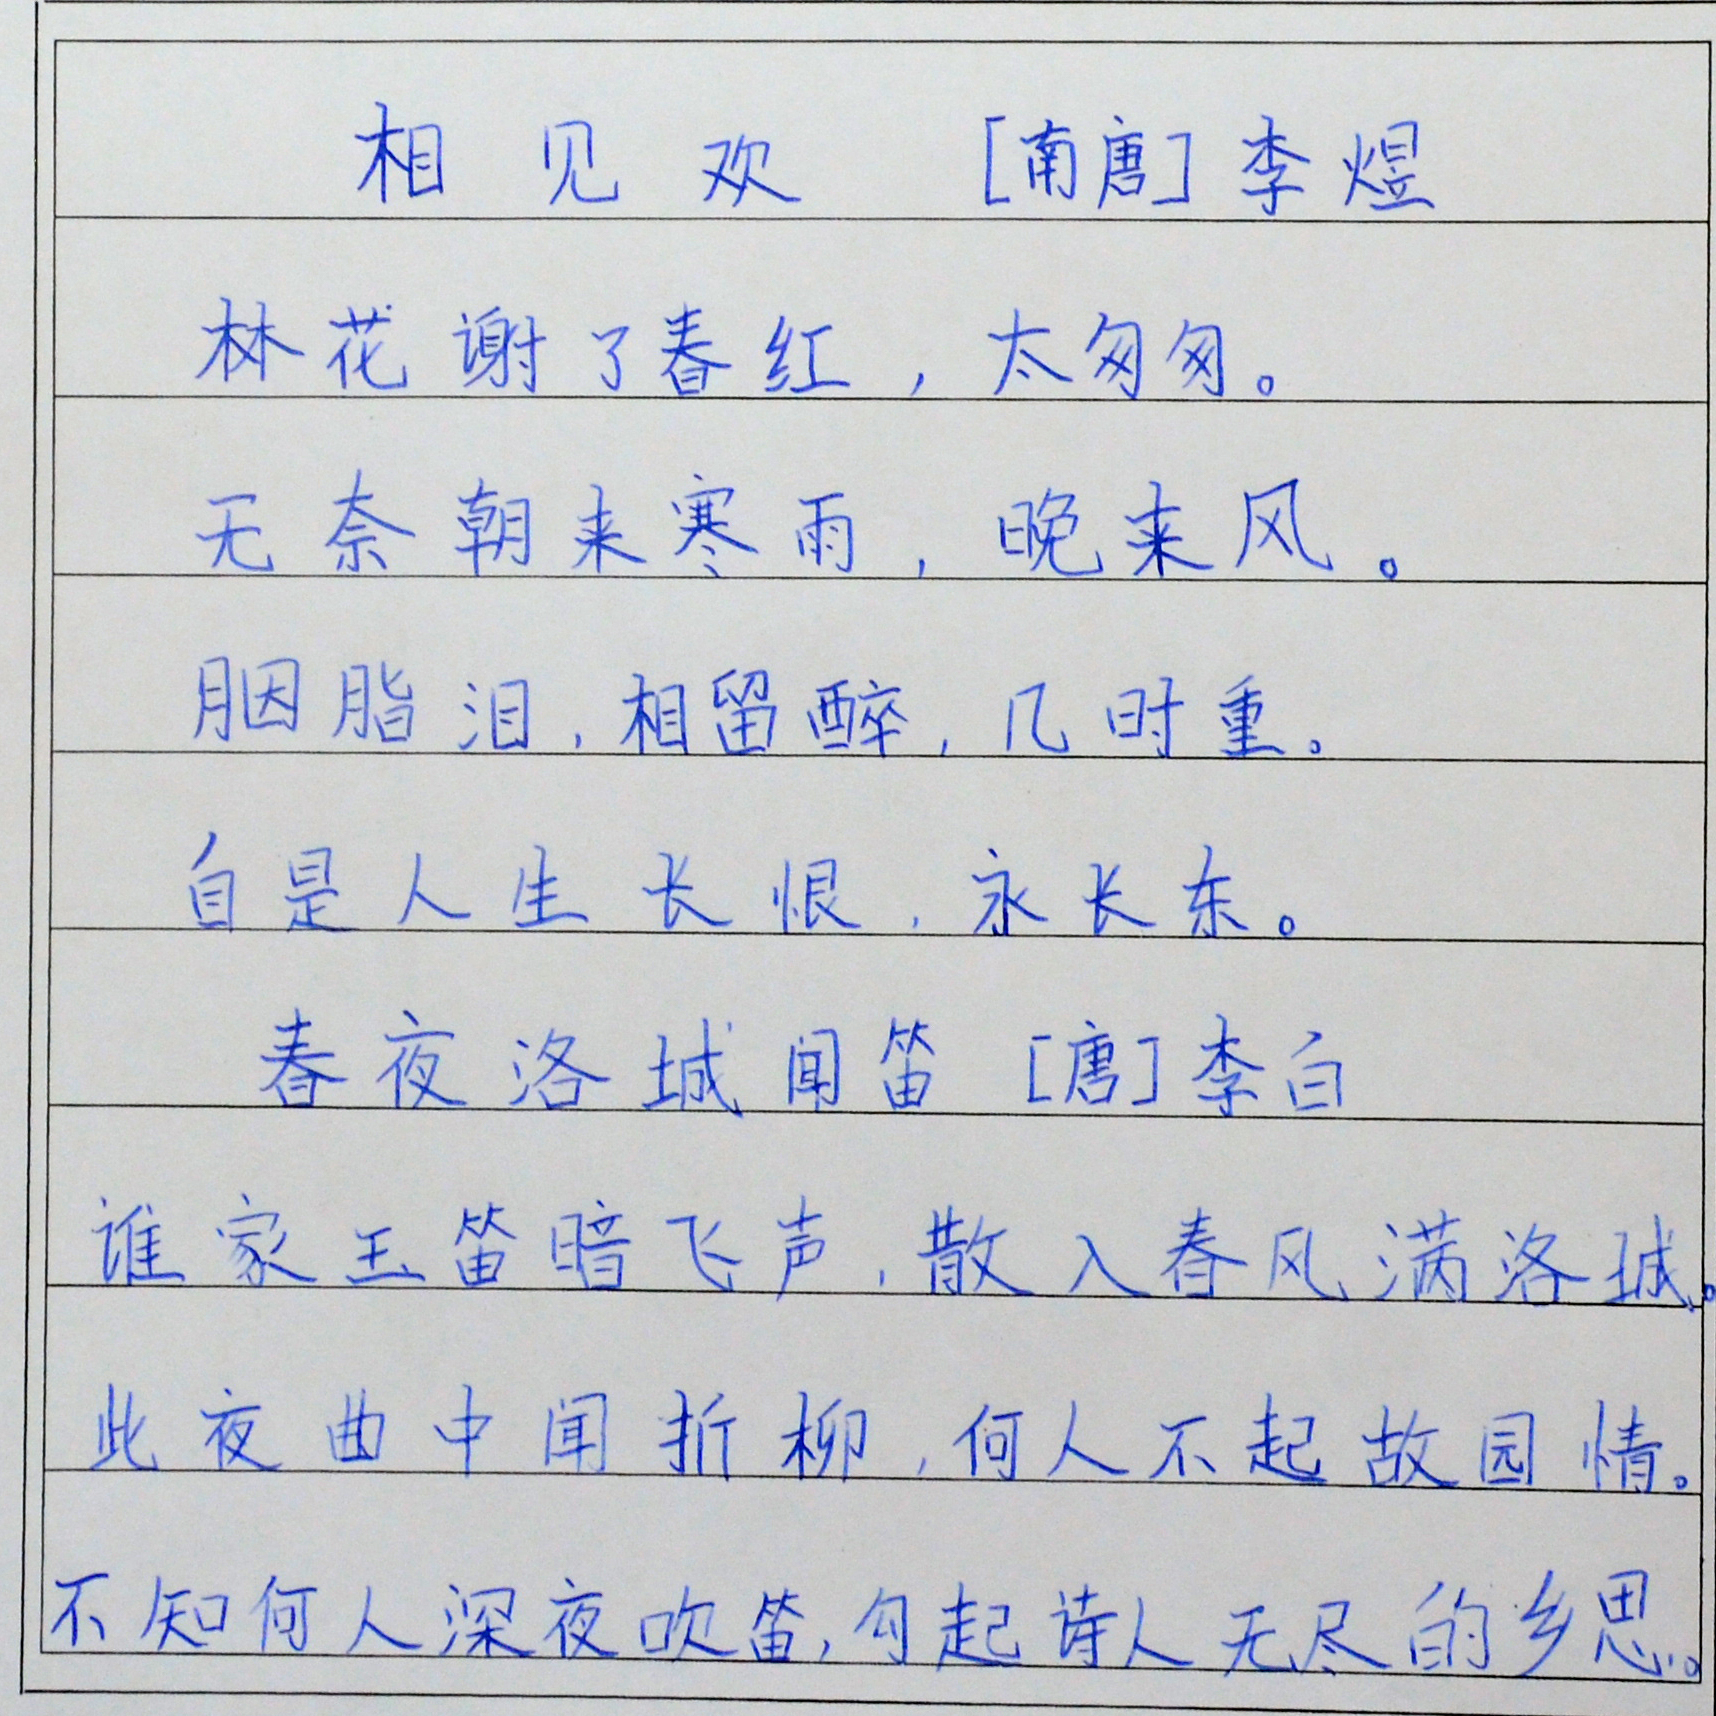 相见欢 [南唐]李煜
林花谢了春红，太匆匆。
无奈朝来寒雨，晚来风。
胭脂泪，相留醉，几时重。
自是人生长恨，永长东。
春夜洛城闻笛 [唐]李白
谁家玉笛暗飞声，散入春风满洛城。
此夜曲中闻折柳，何人不起故园情。
不知何人深夜吹笛，勾起诗人无尽的乡思。